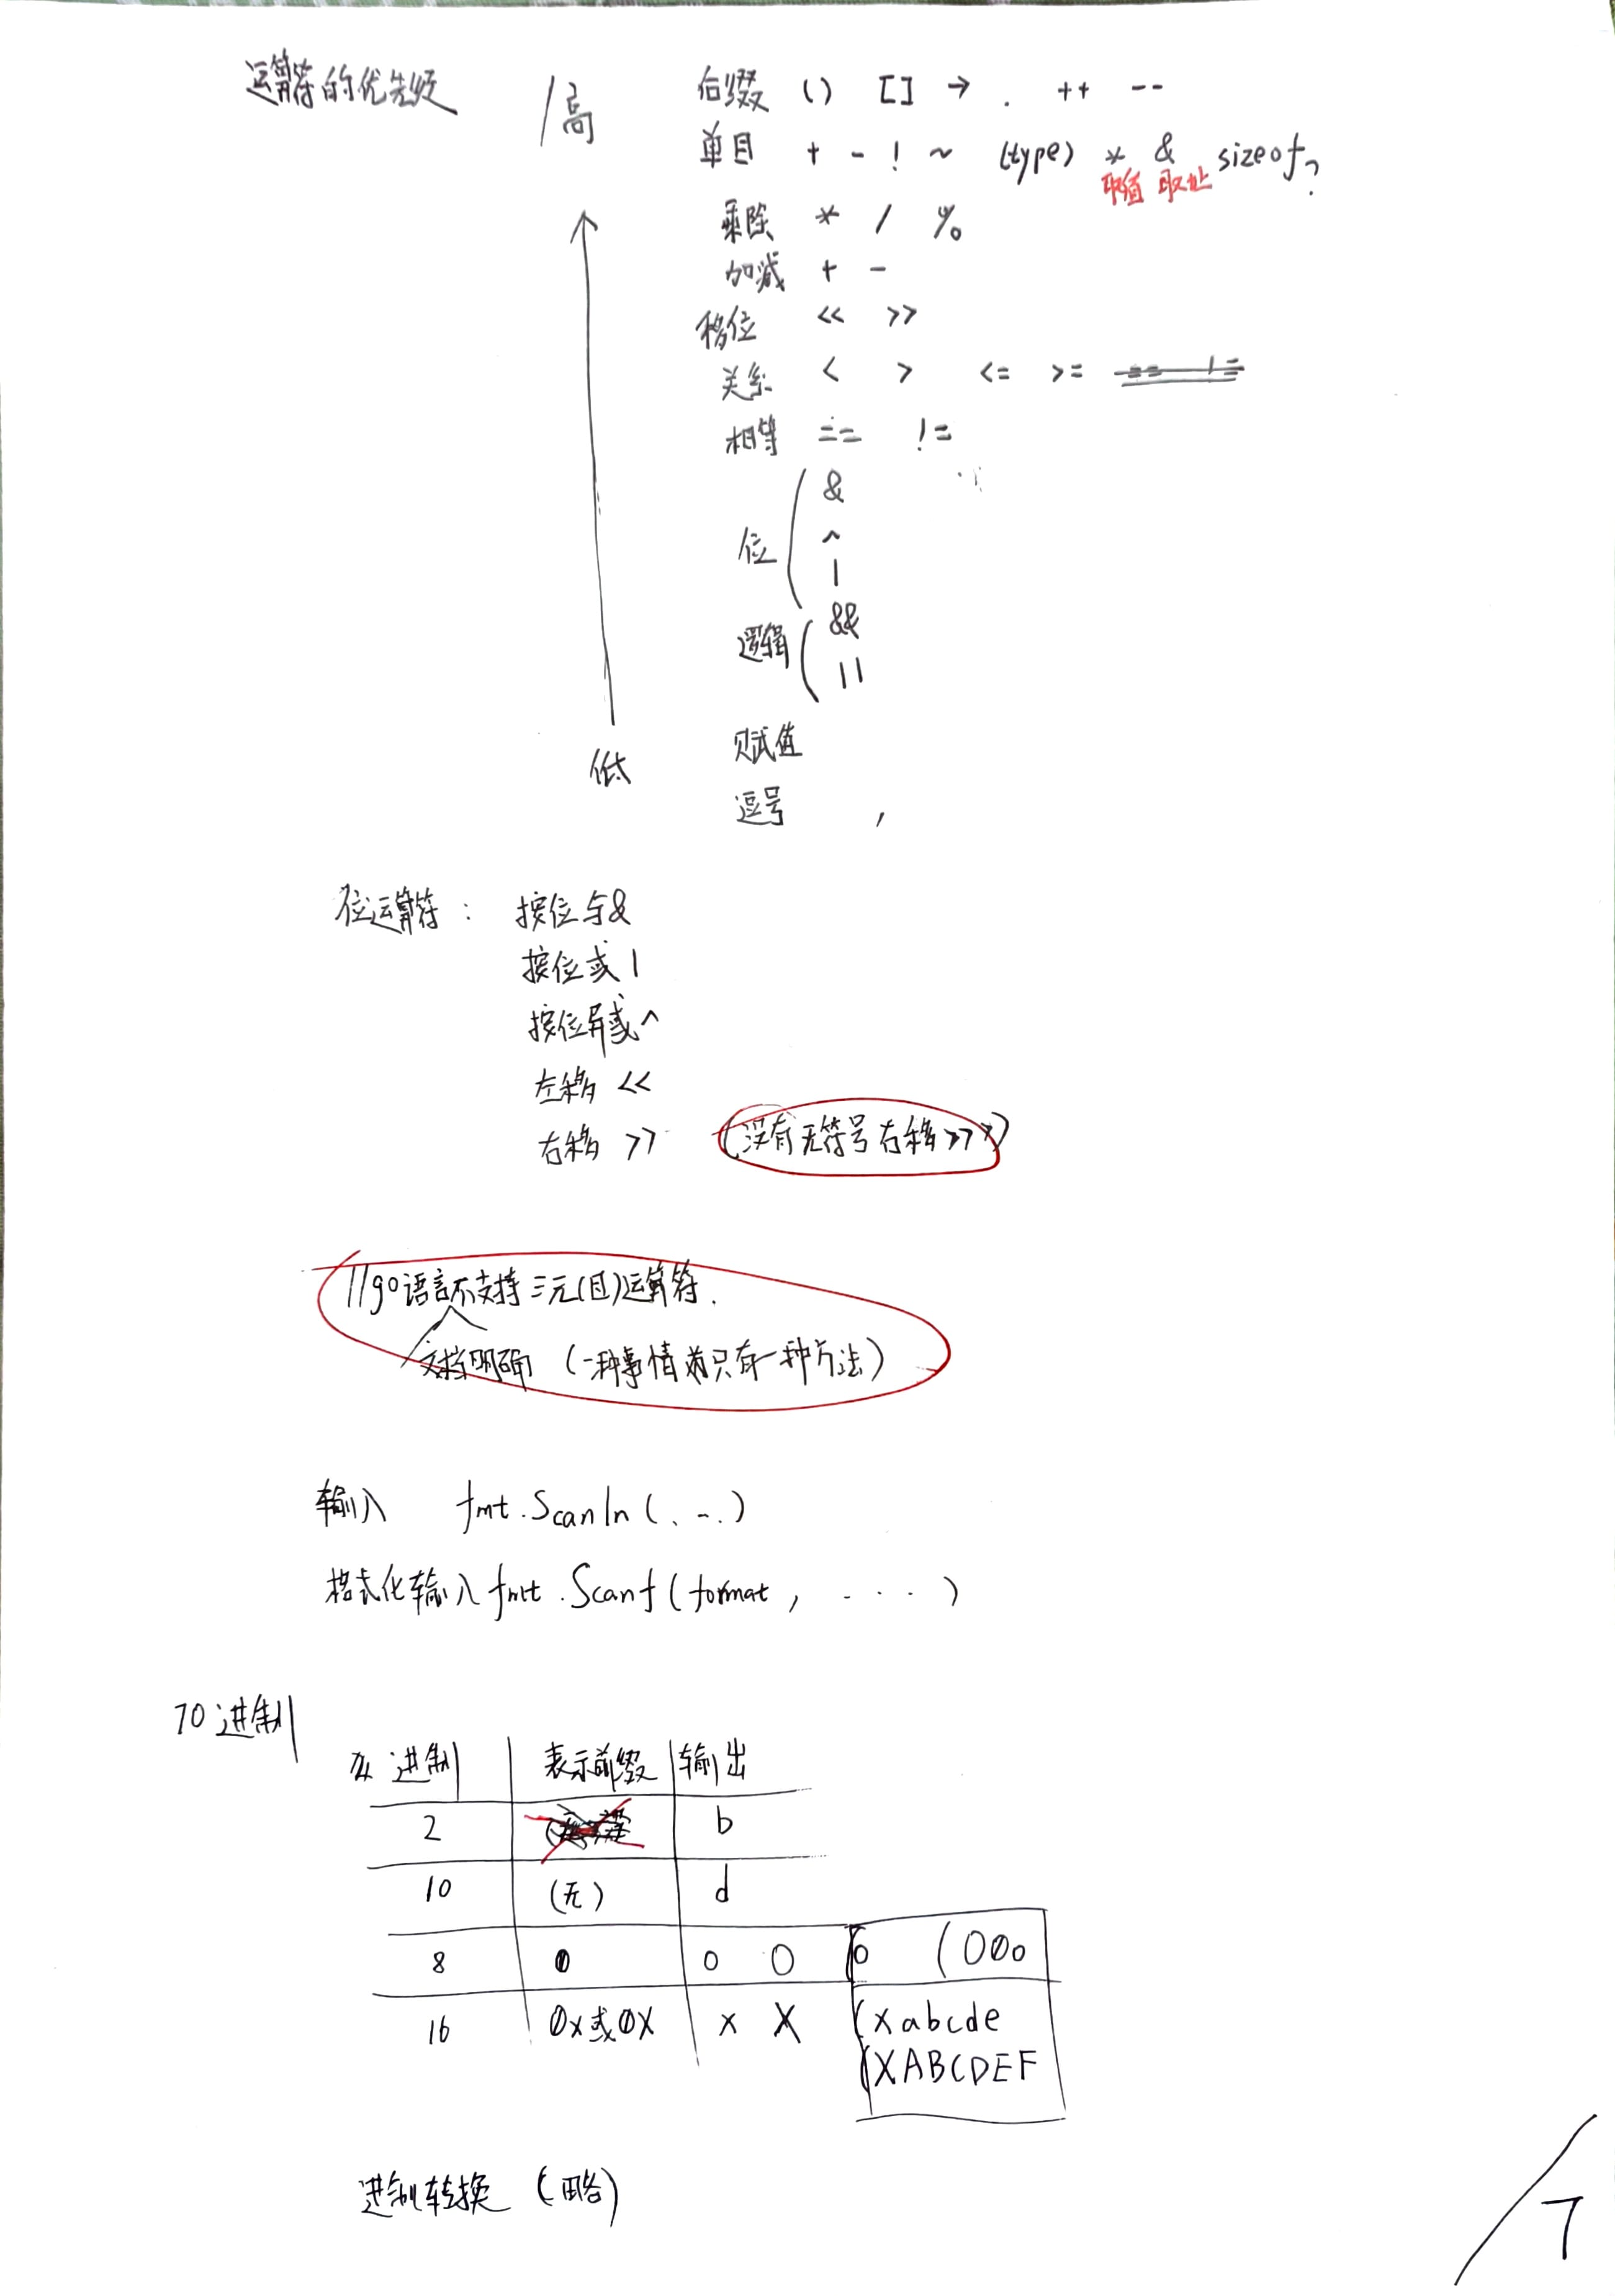 运算符的优先级
高
后缀 () [] → . ++ --
单目 + - ! ~ (type) * & sizeof?
取值 取址
乘除 * / %
加减 + -
移位 << >>
关系 < > <= >= == !=
相等 == !=
位 &
^
|
逻辑 &&
||
赋值
低
逗号 ,
位运算符: 按位与&
按位或 |
按位异或^
左移 <<
右移 >> (没有无符号右移>>>)
//go语言不支持三元(目)运算符.
文档明确 (一种事情只有一种方法)
输入 fmt.Scanln(...)
格式化输入 fmt.Scanf(format, ....)
70 进制
进制 表示前缀 输出
2 b
10 (无) d
8 0 o O (o (O0o
16 0x或0X x X (xabcde
(XABCDEF
进制转换 (略)
7